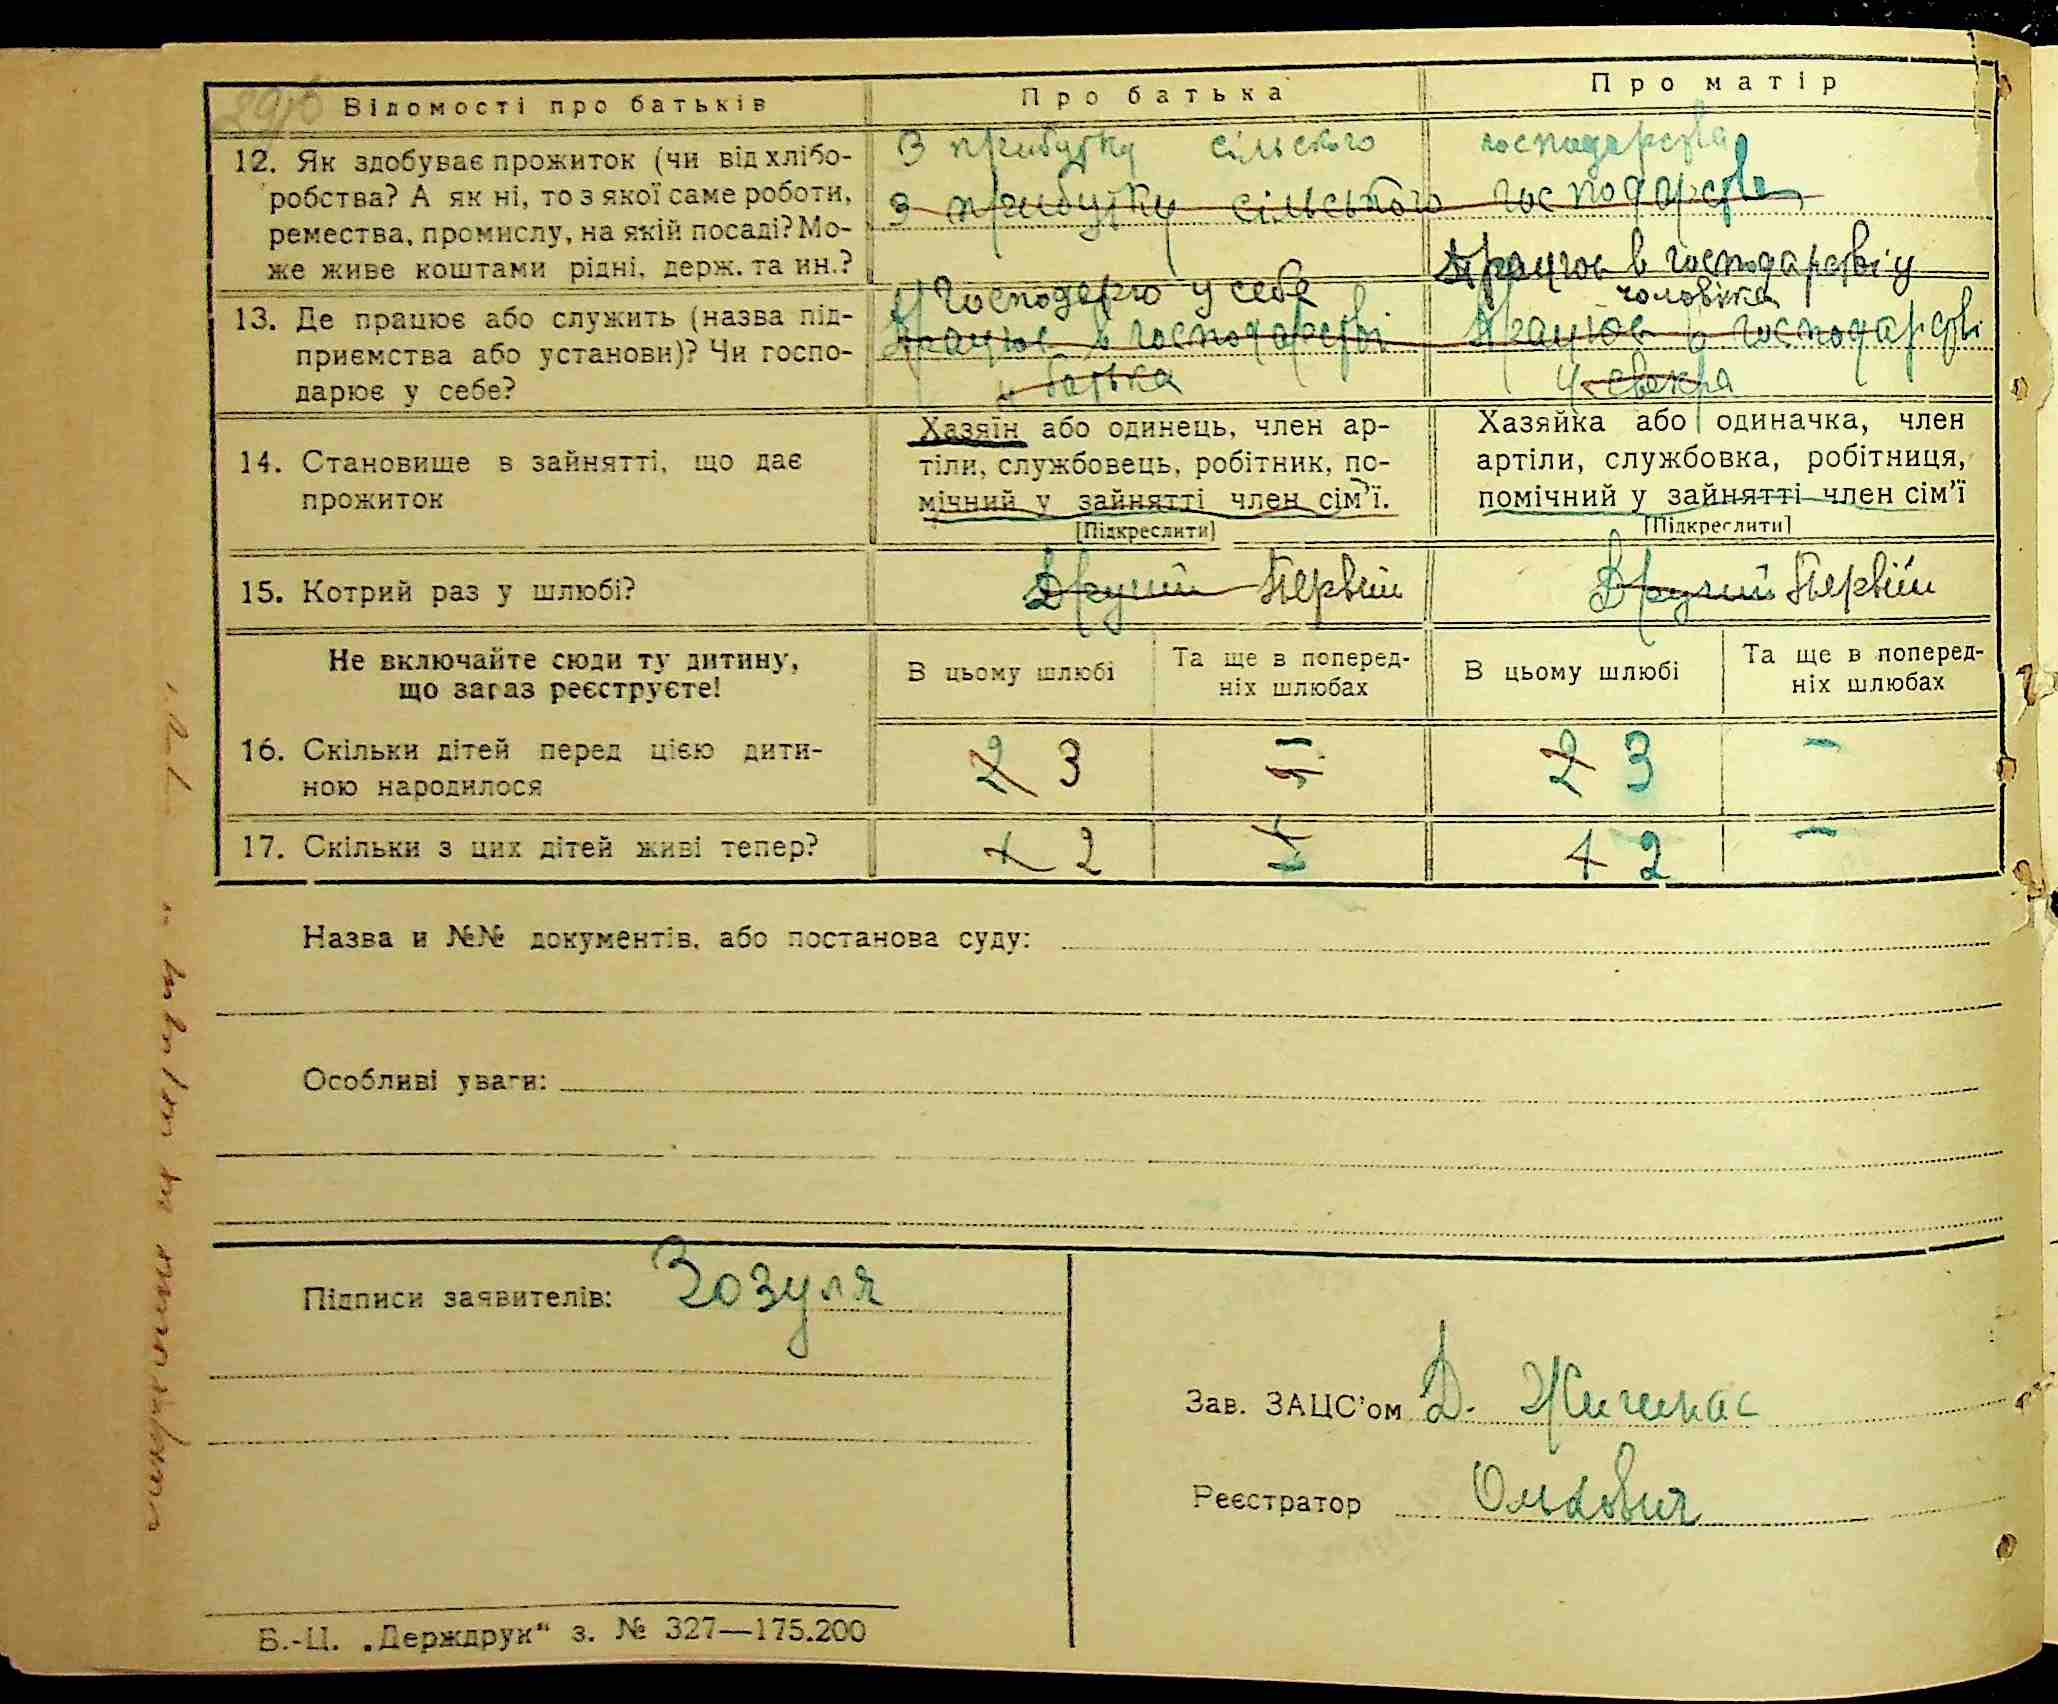 Відомості про батьків
Про батька
Про матір
12. Як здобуває прожиток (чи від хлібо-
робства? А як ні, то з якої саме роботи,
ремества, промислу, на якій посаді? Мо-
же живе коштами рідні, держ. та ин.?
З прибутку сільского господарства
З прибутку сільського господарства
Працює в господарстві у
чоловіка
13. Де працює або служить (назва під-
приємства або установи)? Чи госпо-
дарює у себе?
Господарю у себе
Працює в господарстві
у батька
Працює в господарстві
у свекра
14. Становище в зайнятті, що дає
прожиток
Хазяїн або одинець, член ар-
тіли, службовець, робітник, по-
мічний у зайнятті член сім'ї.
[Підкреслити]
Хазяйка або одиначка, член
артіли, службовка, робітниця,
помічний у зайнятті член сім'ї
[Підкреслити]
15. Котрий раз у шлюбі?
Другий Первий
Другий Первий
Не включайте сюди ту дитину,
що зараз реєструєте!
В цьому шлюбі
Та ще в поперед-
ніх шлюбах
В цьому шлюбі
Та ще в поперед-
ніх шлюбах
16. Скільки дітей перед цією дити-
ною народилося
2 3
–
2 3
–
17. Скільки з цих дітей живі тепер?
1 2
1 2
–
Назва и №№ документів, або постанова суду:
Особливі уваги:
Підписи заявителів: Зозуля
Зав. ЗАЦС'ом Д.
Реєстратор
Б.-Ц. „Держдрук" з. № 327—175.200